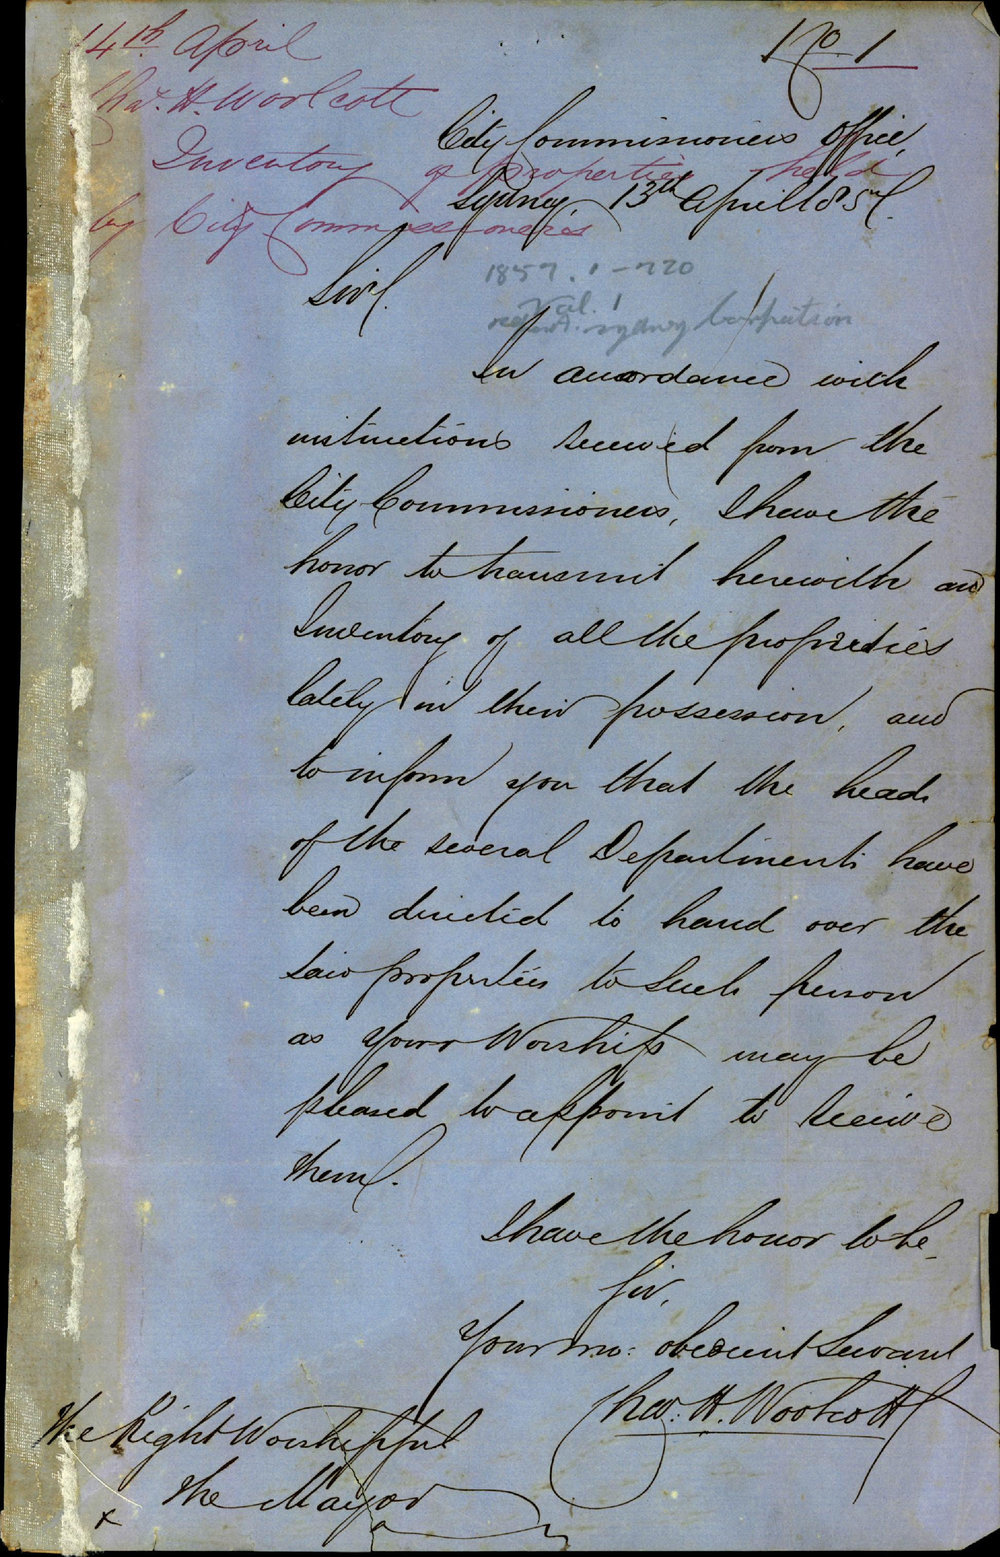 14th April
Chas. H. Woolcott
Inventory of properties held
by City Commissioners
No 1
City Commissioners Office,
Sydney, 13th April 1857.
1857. 1-220
Vol. 1
Sydney Corporation
Sir,
In accordance with
instructions received from the
City Commissioners, I have the
honor to transmit herewith an
Inventory of all the properties
lately in their possession, and
to inform you that the heads
of the several Departments have
been directed to hand over the
said properties to such person
as Your Worship may be
pleased to appoint to receive
them.
I have the honor to be
Sir,
Your mo: obedient Servant
Chas. H. Woolcott
The Right Worshipful
the Mayor
x